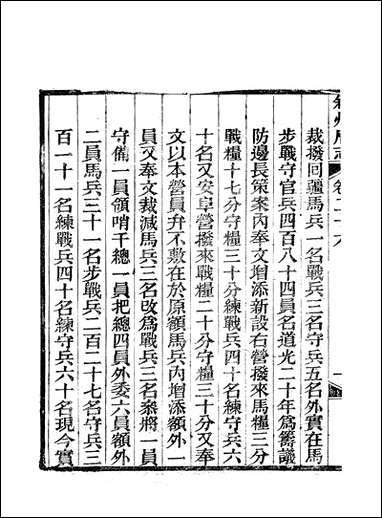 裁撥回疆馬兵一名戰兵三名守兵五名外實在馬
步戰守官兵四百八十四員名道光二十年為籌議
防邊長策案內奉文增添新設右營撥來馬糧三分
戰糧十七分守糧三十分練戰兵四十名練守兵六
十名又安阜營撥來戰糧二十分守糧三十分又奉
文以本營員弁不敷在於原額馬兵內增添額外一
員又奉文裁減馬兵三名改為戰兵三名叅將一員
守備一員領哨千總一員把總四員外委六員額外
二員馬兵三十一名步戰兵二百二十七名守兵三
百一十一名練戰兵四十名練守兵六十名現今實